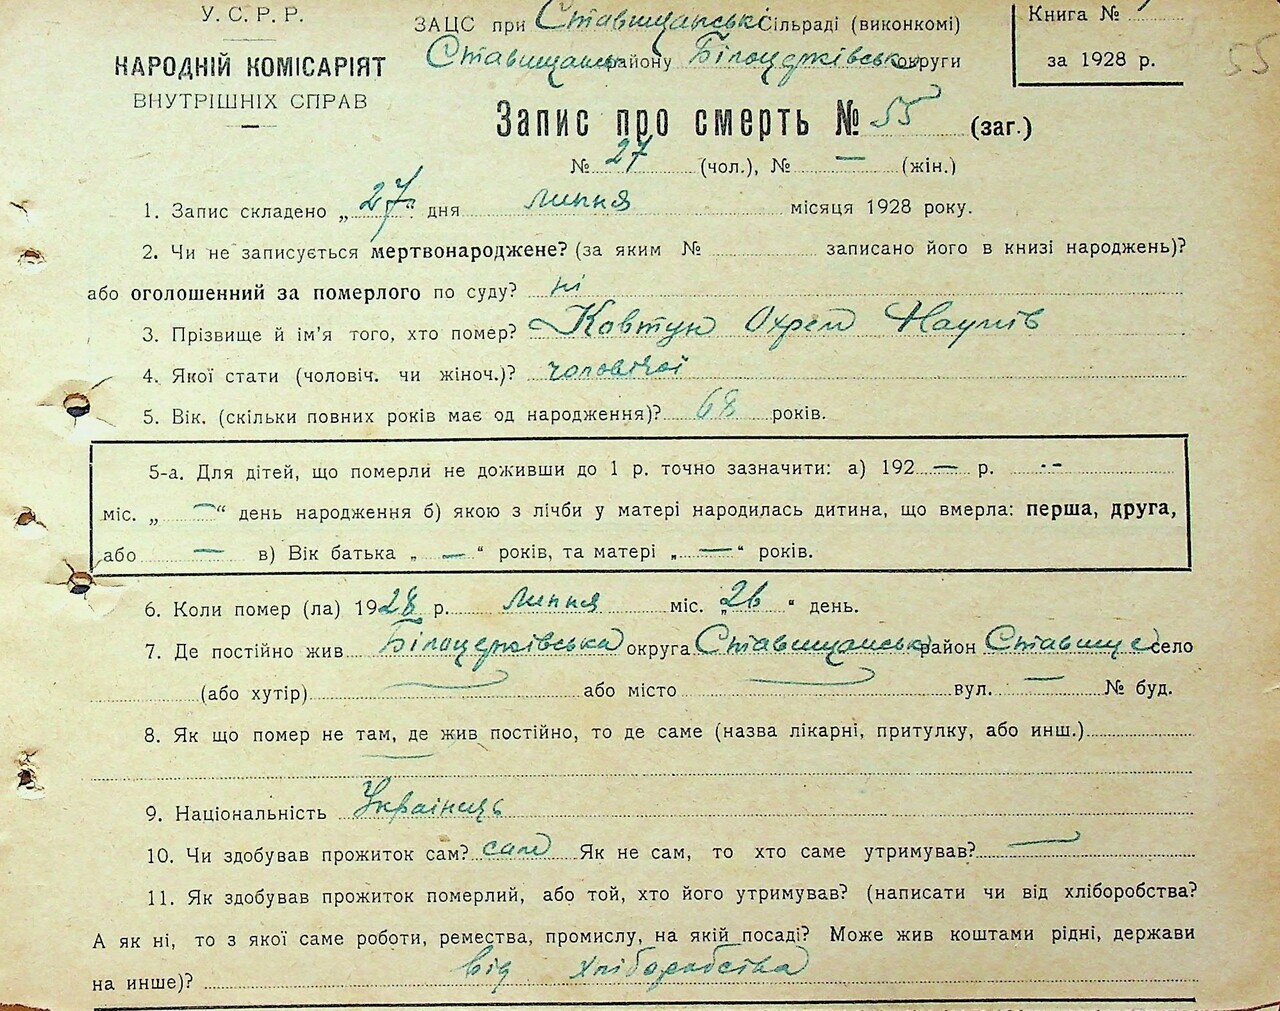 У.С.Р.Р.
НАРОДНІЙ КОМІСАРІЯТ
ВНУТРІШНІХ СПРАВ
ЗАЦС при Ставищанські Сільраді (виконкомі)
Ставищанськ району Білоцерківськ округи
Книга №
за 1928 р.
55
Запис про смерть № 55 (заг.)
№ 27 (чол.), № — (жін.)
1. Запис складено „27“ дня липня місяця 1928 року.
2. Чи не записується мертвонароджене? (за яким № записано його в книзі народжень)?
або оголошенний за померлого по суду? ні
3. Прізвище й ім'я того, хто помер? Ковтун Охрем Наумів
4. Якої стати (чоловіч. чи жіноч.)? чоловічої
5. Вік. (скільки повних років має од народження)? 68 років.
5-а. Для дітей, що померли не доживши до 1 р. точно зазначити: а) 192 — р. --
міс. „ — “ день народження б) якою з лічби у матері народилась дитина, що вмерла: перша, друга,
або — в) Вік батька „ — “ років, та матері „ — “ років.
6. Коли помер (ла) 1928 р. липня міс. „26“ день.
7. Де постійно жив Білоцерківська округа Ставищанськ район Ставище село
(або хутір) — або місто — вул. — № буд.
8. Як що помер не там, де жив постійно, то де саме (назва лікарні, притулку, або инш.)
—
9. Національність Українець
10. Чи здобував прожиток сам? сам Як не сам, то хто саме утримував? —
11. Як здобував прожиток померлий, або той, хто його утримував? (написати чи від хліборобства?
А як ні, то з якої саме роботи, ремества, промислу, на якій посаді? Може жив коштами рідні, держави
на инше)? від хліборобства